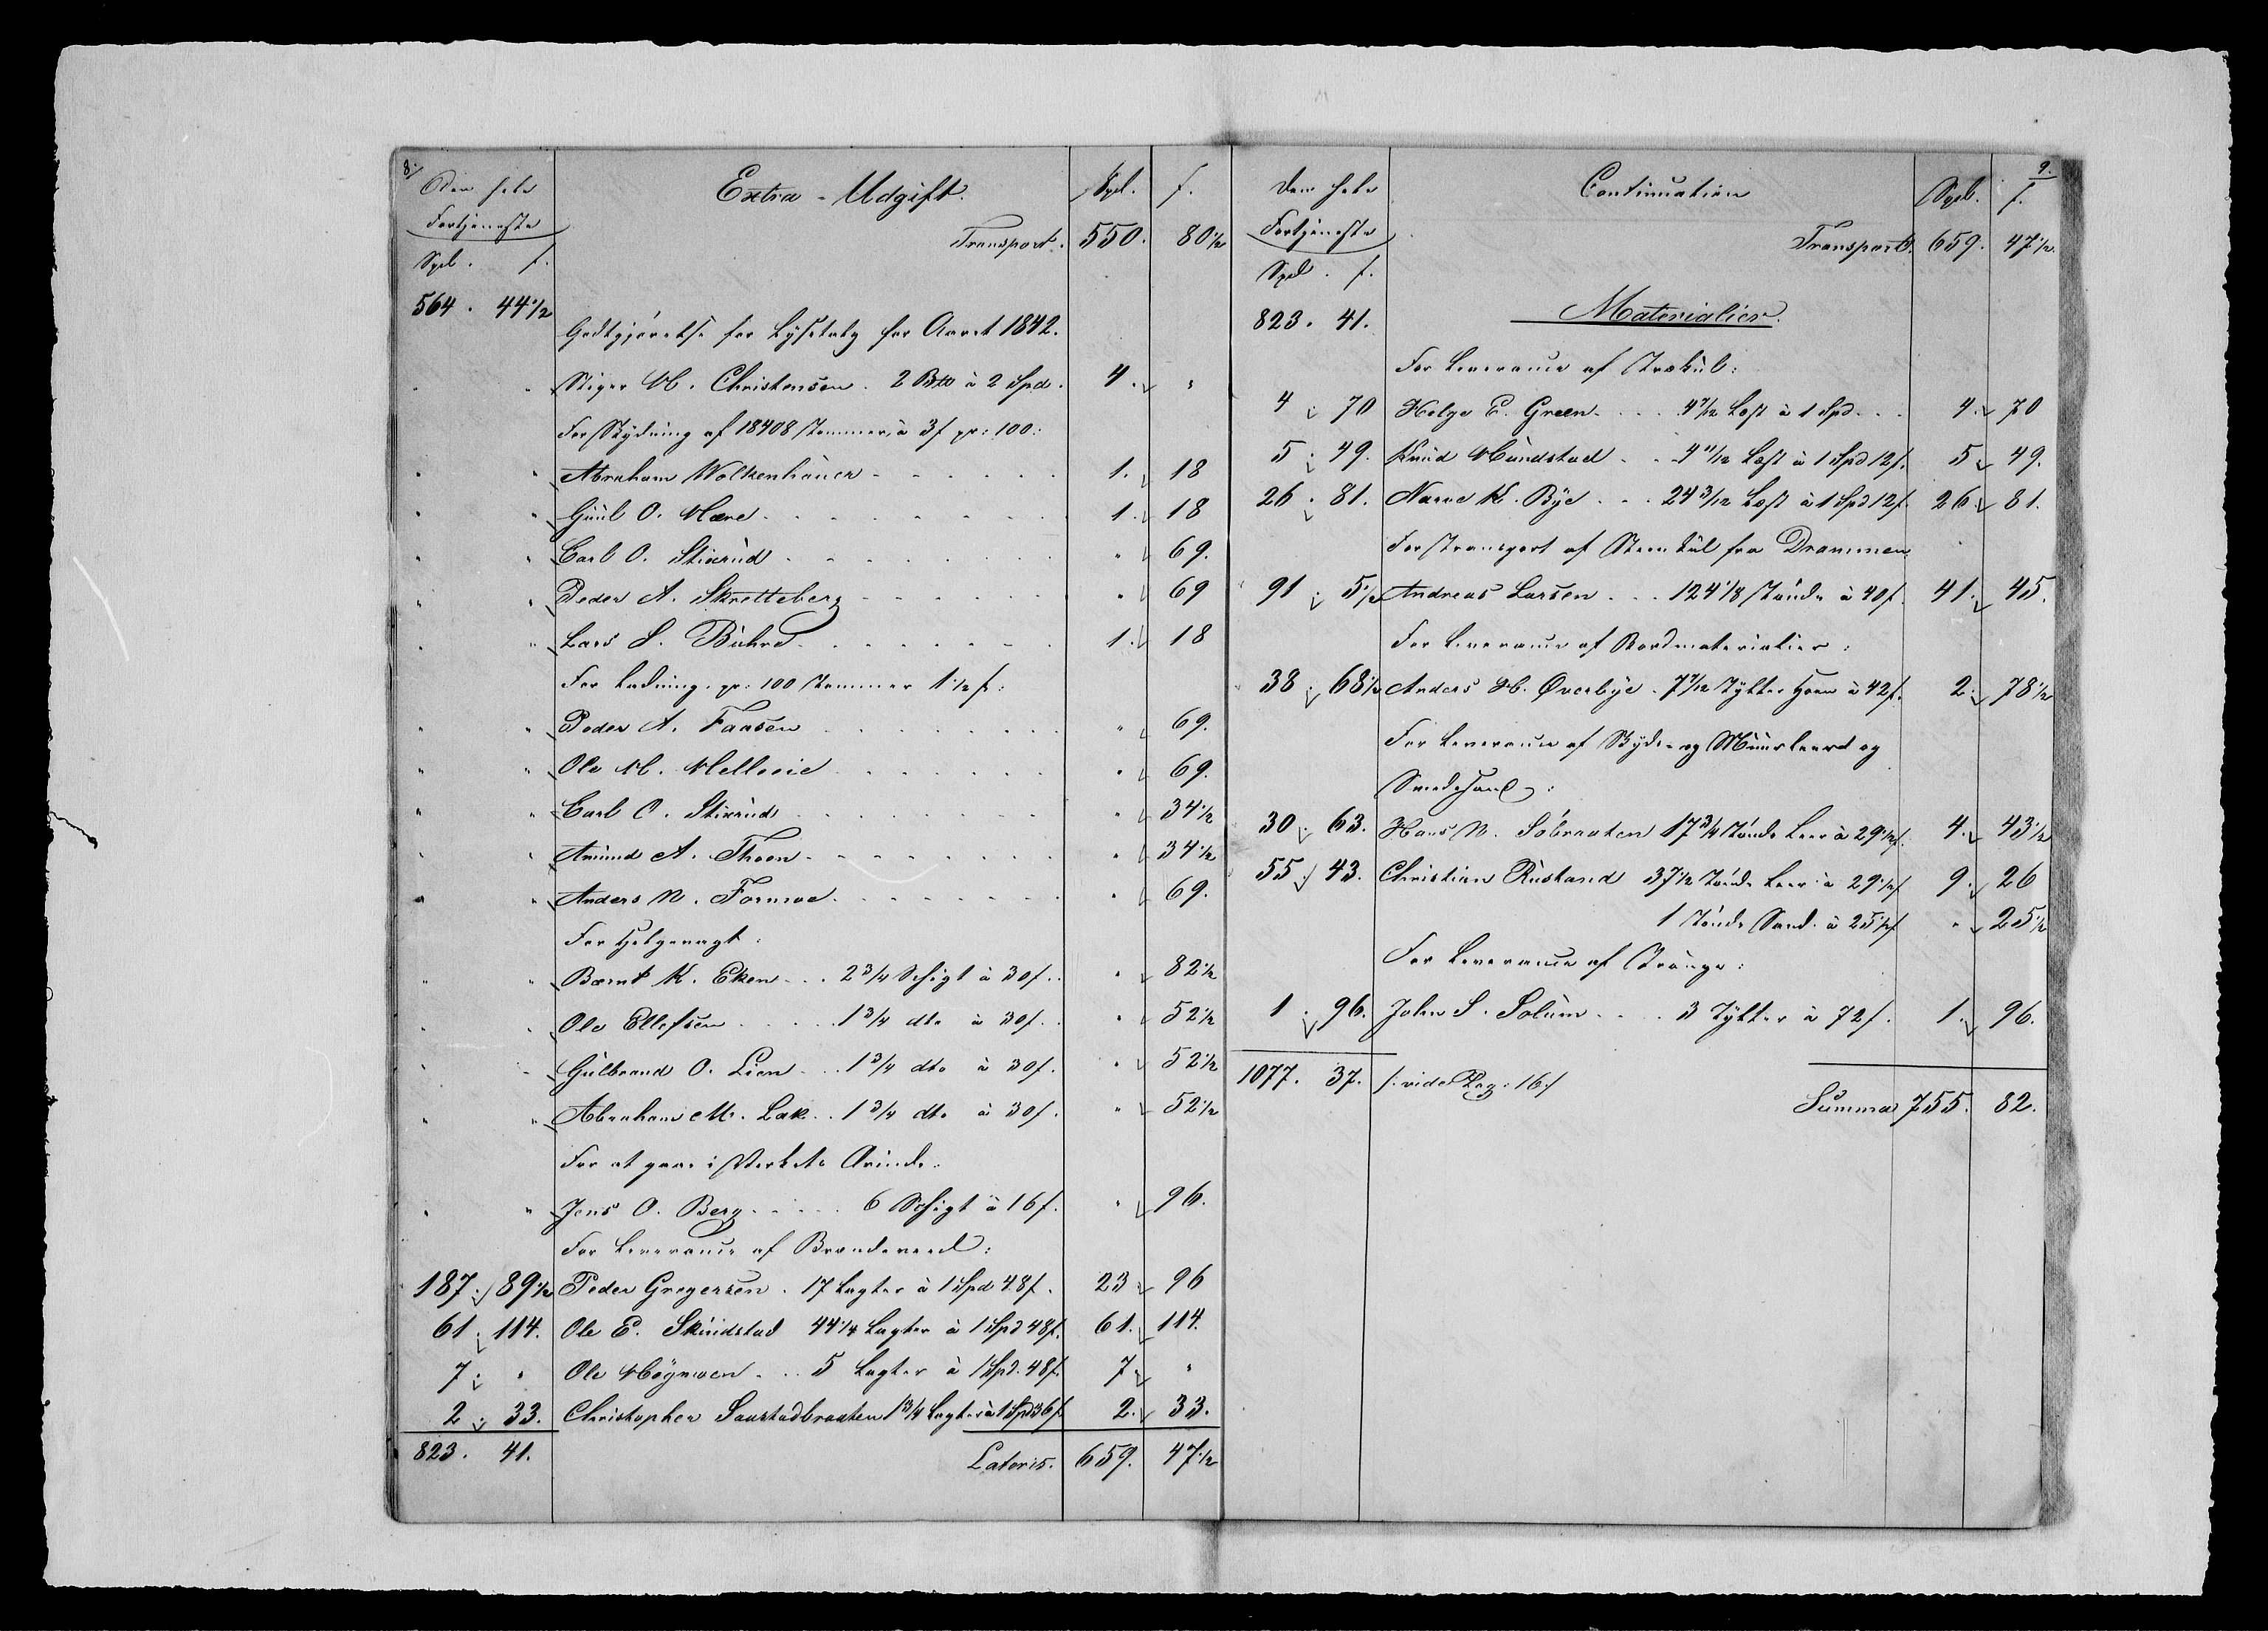 8.
Den hele
Fortjeneste
Spd. ſ.
Extra-Udgift.
Spd. ſ.
Transport. 550. 80 1/2
564. 44 1/2
Godtgjörelse for Lysetalg for Aaret 1842.
" " Stiger H. Christensen. 2 à 2 Spd. 4. "
For Skydning af 18408 Tommer, à 3 ſ pr: 100:
" " Abraham Wolkenhauer 1. 18
" " Guul O. Mære 1. 18
" " Carl O. Stixrud " 69.
" " Peder A. Skretteberg " 69
" " Lars S. Buhrd 1. 18
For Ladning. pr: 100 Tommer 1 1/2 ſ:
" " Peder A. Faasen " 69.
" " Ole H. " 69.
" " Carl O. Stixrud " 34 1/2
" " Amund A. Thoen " 34 1/2
" " Anders N. Formoe " 69.
For Helgevagt:
" " Bernt K. Eken 2 3/4 Schigt à 30 ſ. " 82 1/2
" " Ole Ellefsen 1 3/4 dto à 30 ſ. " 52 1/2
" " Gulbrand O. Lien 1 3/4 dto à 30 ſ. " 52 1/2
" " Abraham M. Lak 1 3/4 dto à 30 ſ. " 52 1/2
For at gaae i Verkets Ærinde.
" " Jens O. Berg 6 Schigt à 16 ſ. " 96.
For Leverance af Brændeveed:
187. 89 1/2 Peder Gregersen. 17 Lagter à 1 Spd 48 ſ. 23 96
61. 114. Ole E. Skündstad 44 1/4 Lagter à 1 Spd 48 ſ. 61. 114.
7. " Ole Högmoen 5 Lagter à 1 Spd. 48 ſ. 7. "
2. 33. Christopher Saustadbraaten 1 3/4 Lagter à 1 Spd 36 ſ. 2. 33.
823. 41. Lateris. 659. 47 1/2
9.
Den hele
Fortjeneste
Spd. ſ.
Continuation
Spd. ſ.
Transport. 659. 47 1/2.
823. 41.
Materialier.
For Leverance af Trækul:
4. 70 Helge E. Green 4 7/12 Læst à 1 Spd 4. 70
5. 49. Knud Mundstad 4 11/12 Læst à 1 Spd 12 ſ. 5 49.
26. 81. Narve K. Bye 24 3/12 Læst à 1 Spd 12 ſ. 26. 81.
For Transport af Steenkul fra Drammen
91. 5 1/2 Andreas Larsen 124 1/8 Tönde à 40 ſ. 41. 45.
For Leverance af Bordmaterialier:
38. 68 1/2 Anders H. Overbye. 7 7/12 Tylter à 42 ſ. 2. 78 1/2
For Leverance af og Muurleered og
Smedesand:
30. 63. Hans N. Söbraaten 17 3/4 Tönde Leer à 29 1/2 ſ. 4. 43 1/2
55. 43. Christian Rustand 37 1/2 Tönde Leer à 29 1/2 ſ 9. 26
1 Tönde Sand. à 25 1/2 ſ " 25 1/2
For Leverance af Trönge:
1. 96. John S. Solum 3 Tylter à 72 ſ. 1. 96.
1077. 37. /: vide Pag: 16 :/
Summa 755. 82.